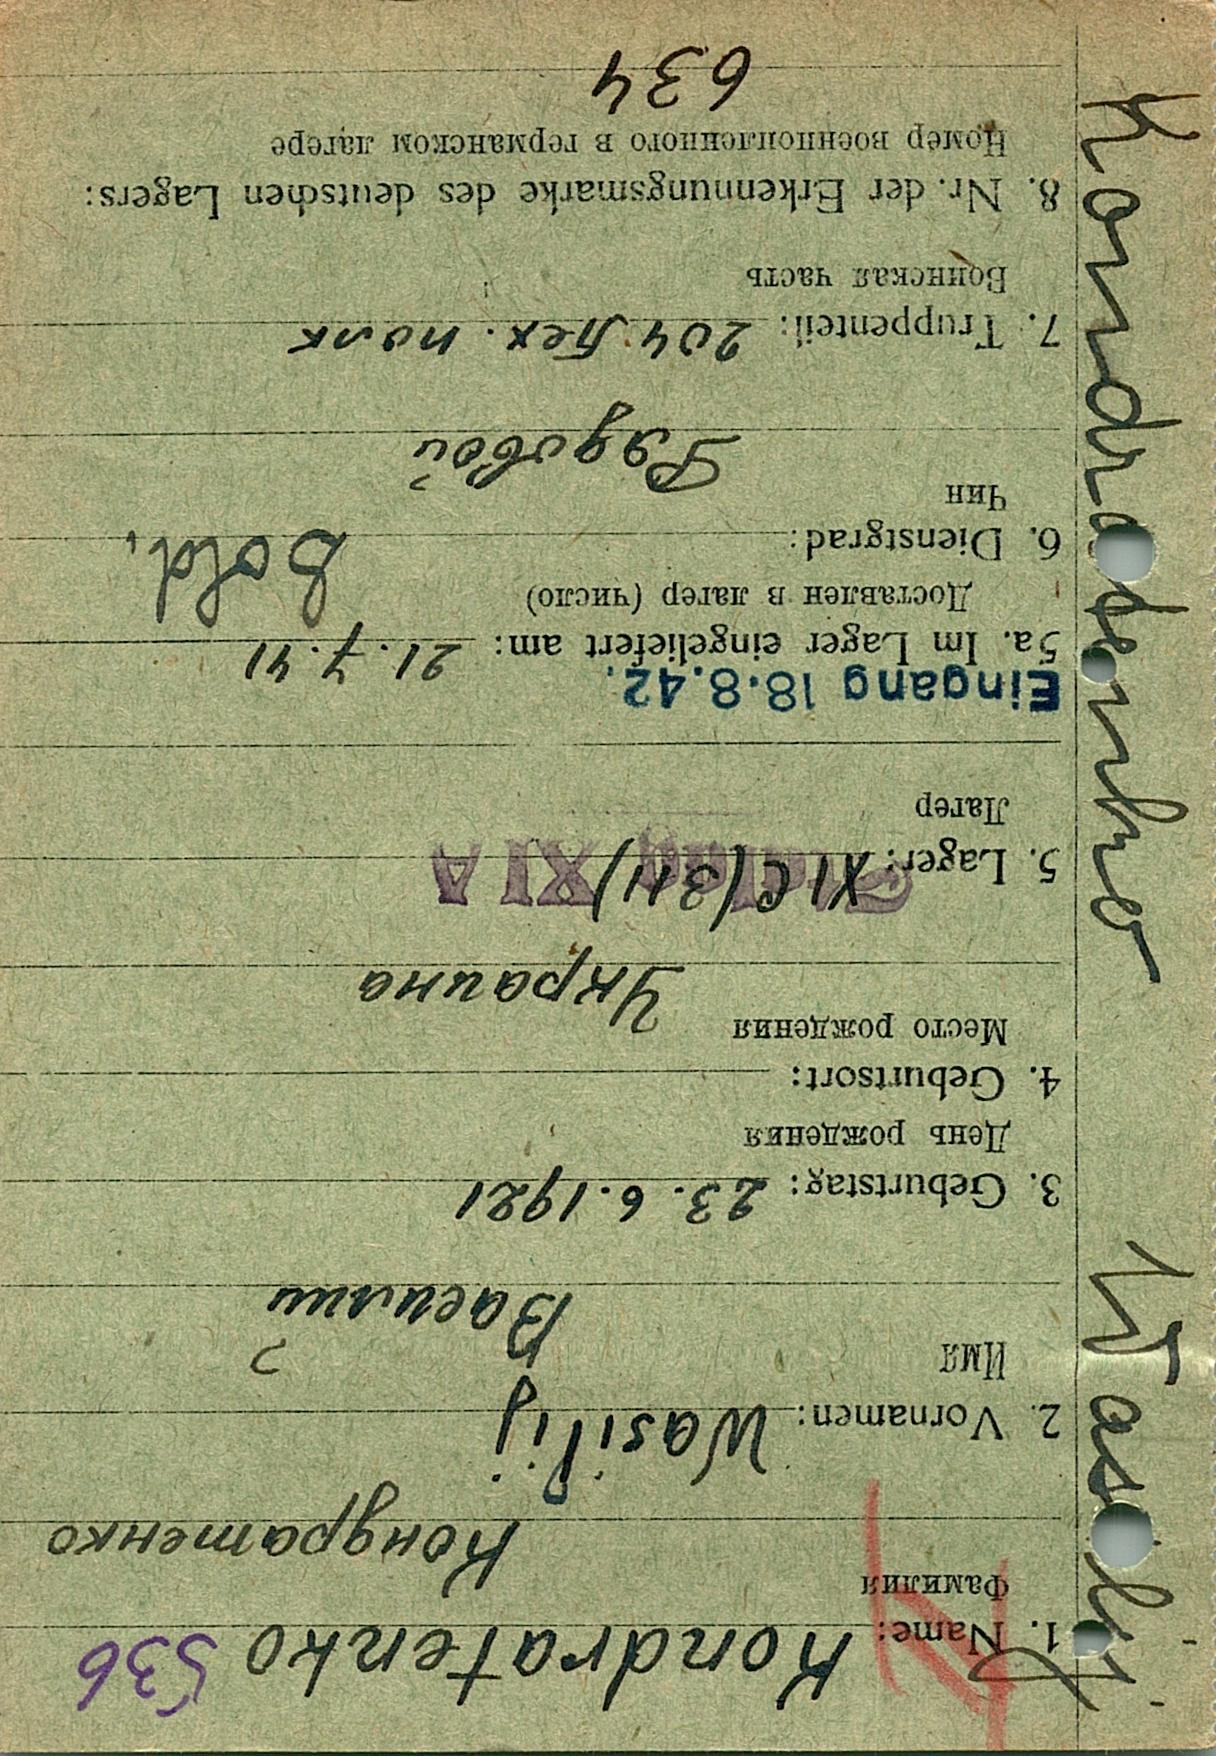 Kondratenko Wasilij
1. Name: Kondratenko 536
Фамилия
Кондратенко
2. Vornamen: Wasilij
Имя
?
Василий
3. Geburtstag: 23. 6. 1921
День рождения
4. Geburtsort:
Место рождения
Украина
5. Lager: XI C (311)
Stalag XI A
Лагер
Eingang 18.8.42.
5a. Im Lager eingeliefert am: 21. 7. 41
Доставлен в лагер (число)
6. Dienstgrad: Sold.
Чин
Рядовой
7. Truppenteil: 204 полк
Воинская часть
8. Nr. der Erkennungsmarke des deutschen Lagers:
Номер военнопленного в германском лагере
634